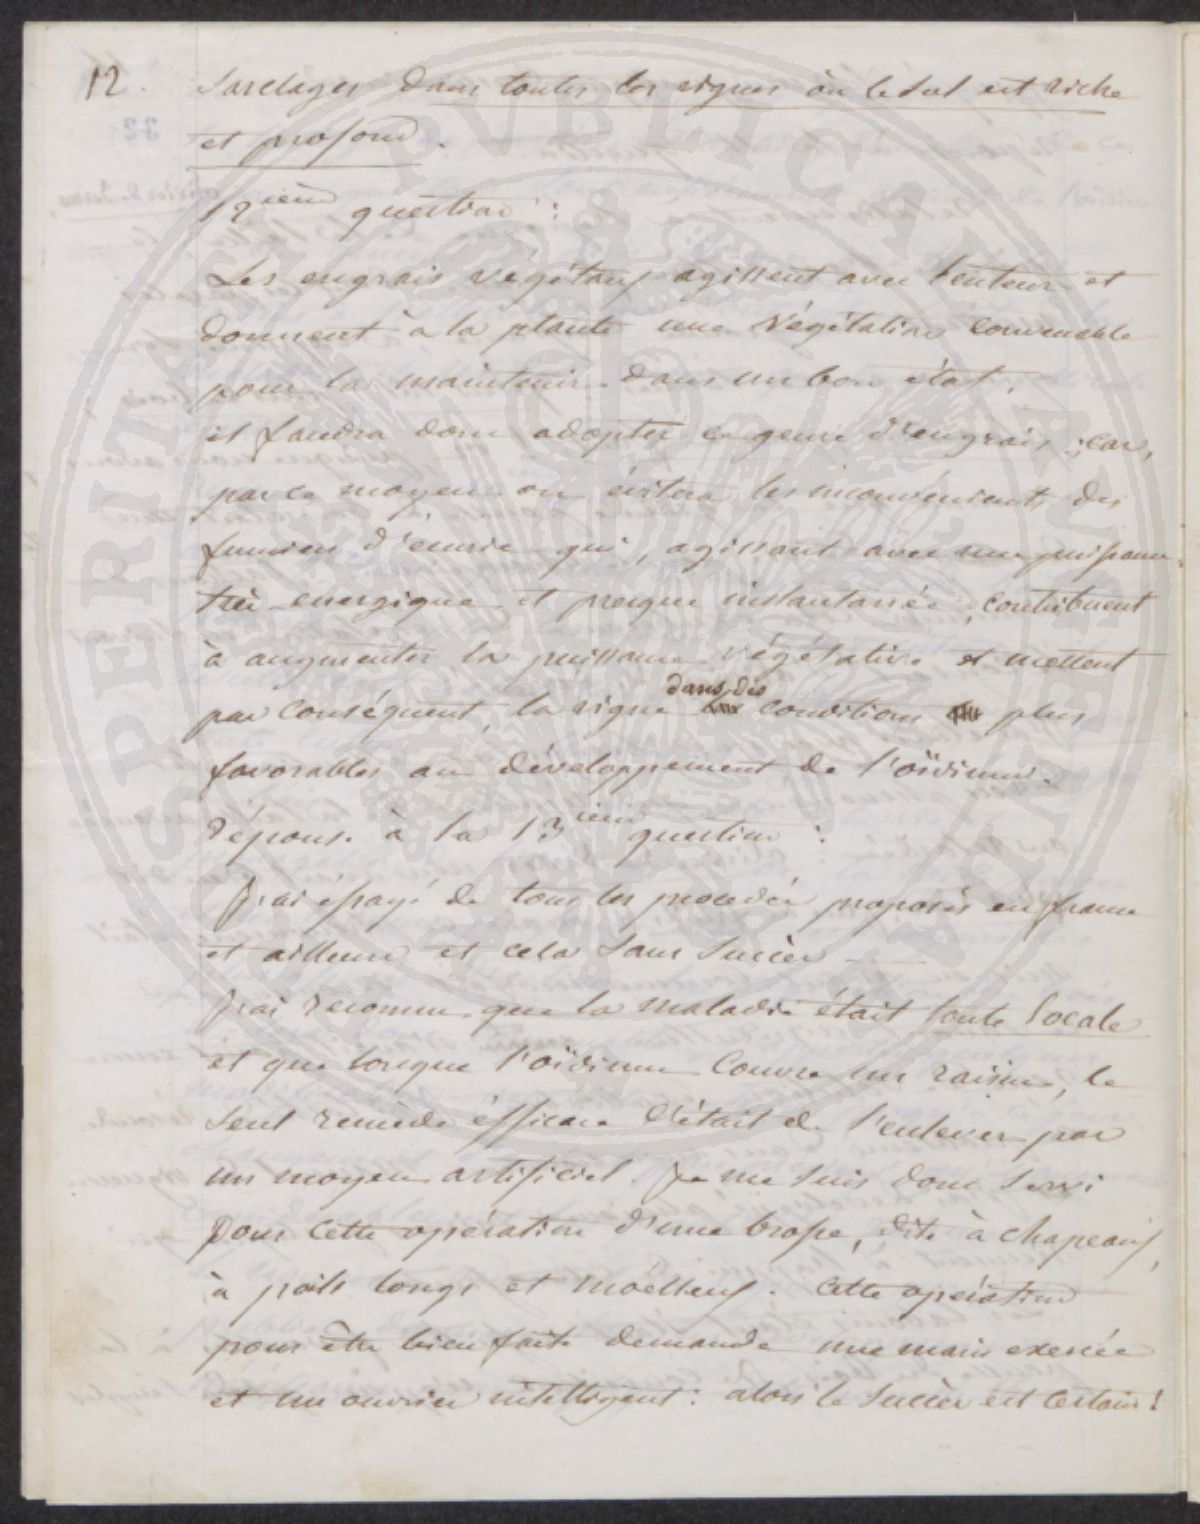 12.
Sarclages dans toutes les vignes où le sol est riche
et profond.
12ième question :
Les engrais végétaux agissent avec lenteur et
donnent à la plante une végétation convenable
pour la maintenir dans un bon état.
il faudra donc adopter ce genre d'engrais ; car,
par ce moyen on évitera les inconvénients des
fumiers d'écurie qui, agissant avec une puissance
très energique et presque instantanée, contribuent
à augmenter la puissance végétative et mettent
par conséquent, la vigne dans des conditions plus
favorables au développement de l'oïdium.
Réponse à la 13ième question :
J'ai éssayé de tous les procédés proposés en france
et ailleurs et cela sans succès —
J'ai reconnu que la maladie était toute locale
et que lorsque l'oïdium couvre un raisin, le
seul remède éfficace c'était de l'enlever par
un moyen artificiel. Je me suis donc servi
pour cette opération d'une brosse, dite à chapeaux,
à poils longs et moëlleux. Cette opération
pour être bien faite demande une main exercée
et un ouvrier intelligent : alors le succès est certain !
SPERITAS PUBLICA